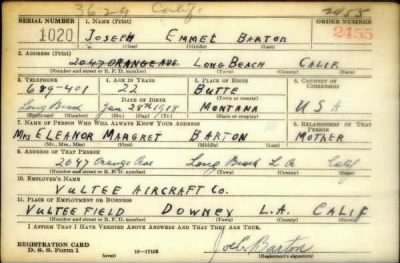 3629 Calif. 2455
SERIAL NUMBER 1. NAME (Print) ORDER NUMBER
1020 JOSEPH EMMET BARTON 2455
(First) (Middle) (Last)
2. ADDRESS (Print)
2047 ORANGE AVE LONG BEACH CALIF
(Number and street or R. F. D. number) (Town) (County) (State)
3. TELEPHONE 4. AGE IN YEARS 5. PLACE OF BIRTH 6. COUNTRY OF CITIZENSHIP
689-401 22 BUTTE
DATE OF BIRTH (Town or county)
Long Beach Jan 28th 1918 MONTANA U S A
(Exchange) (Number) (Mo.) (Day) (Yr.) (State or country)
7. NAME OF PERSON WHO WILL ALWAYS KNOW YOUR ADDRESS 8. RELATIONSHIP OF THAT PERSON
Mrs ELEANOR MARGRET BARTON MOTHER
(Mr., Mrs., Miss) (First) (Middle) (Last)
9. ADDRESS OF THAT PERSON
2047 Orange Ave Long Beach L A Calif
(Number and street or R. F. D. number) (Town) (County) (State)
10. EMPLOYER'S NAME
VULTEE AIRCRAFT Co.
11. PLACE OF EMPLOYMENT OR BUSINESS
VULTEE FIELD DOWNEY L.A. CALIF
(Number and street or R. F. D. number) (Town) (County) (State)
I AFFIRM THAT I HAVE VERIFIED ABOVE ANSWERS AND THAT THEY ARE TRUE.
REGISTRATION CARD
D. S. S. Form 1 (over) 16—17105
Barton
(Registrant's signature)